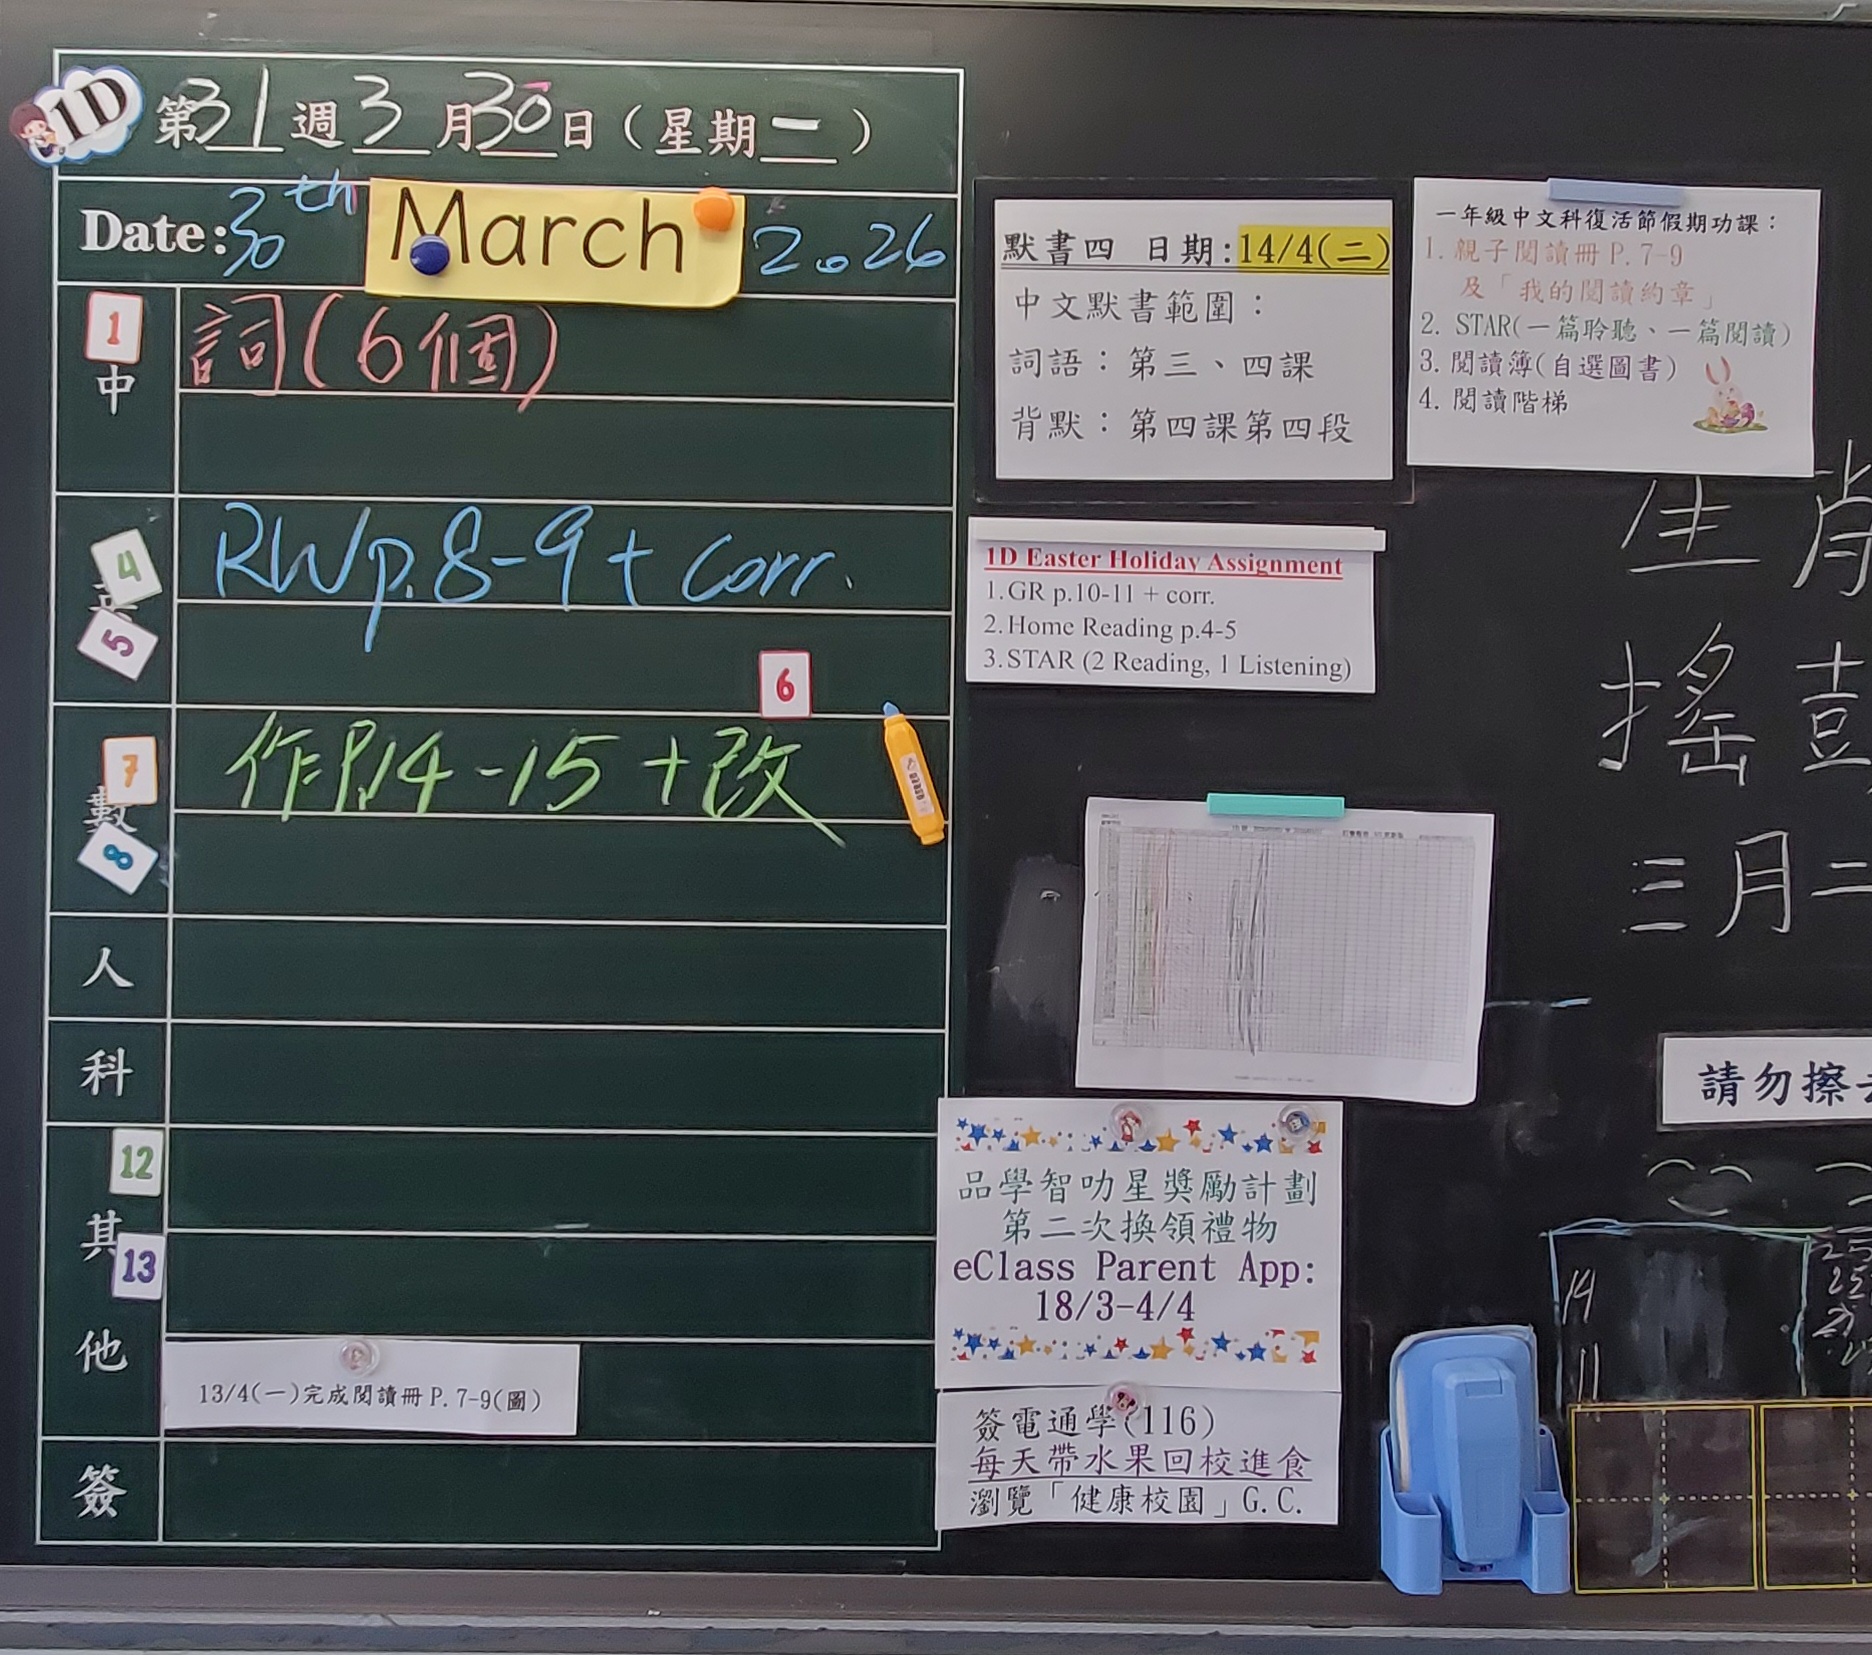 1D
第31週3月30日(星期一)
Date: 30th March 2026
1
中
詞(6個)
4
英
5
RWp.8-9 + corr.
6
7
數
8
作P.14-15 + 改
人
科
12
其
13
他
13/4(一)完成閱讀冊P.7-9(圖)
簽
默書四 日期:14/4(二)
中文默書範圍:
詞語:第三、四課
背默:第四課第四段
一年級中文科復活節假期功課:
1. 親子閱讀冊P.7-9
及「我的閱讀約章」
2. STAR(一篇聆聽、一篇閱讀)
3. 閱讀簿(自選圖書)
4. 閱讀階梯
1D Easter Holiday Assignment
1.GR p.10-11 + corr.
2.Home Reading p.4-5
3.STAR (2 Reading, 1 Listening)
品學智叻星獎勵計劃
第二次換領禮物
eClass Parent App:
18/3-4/4
簽電通學(116)
每天帶水果回校進食
瀏覽「健康校園」G.C.
生肖
搖
三月二
請勿擦
14
11